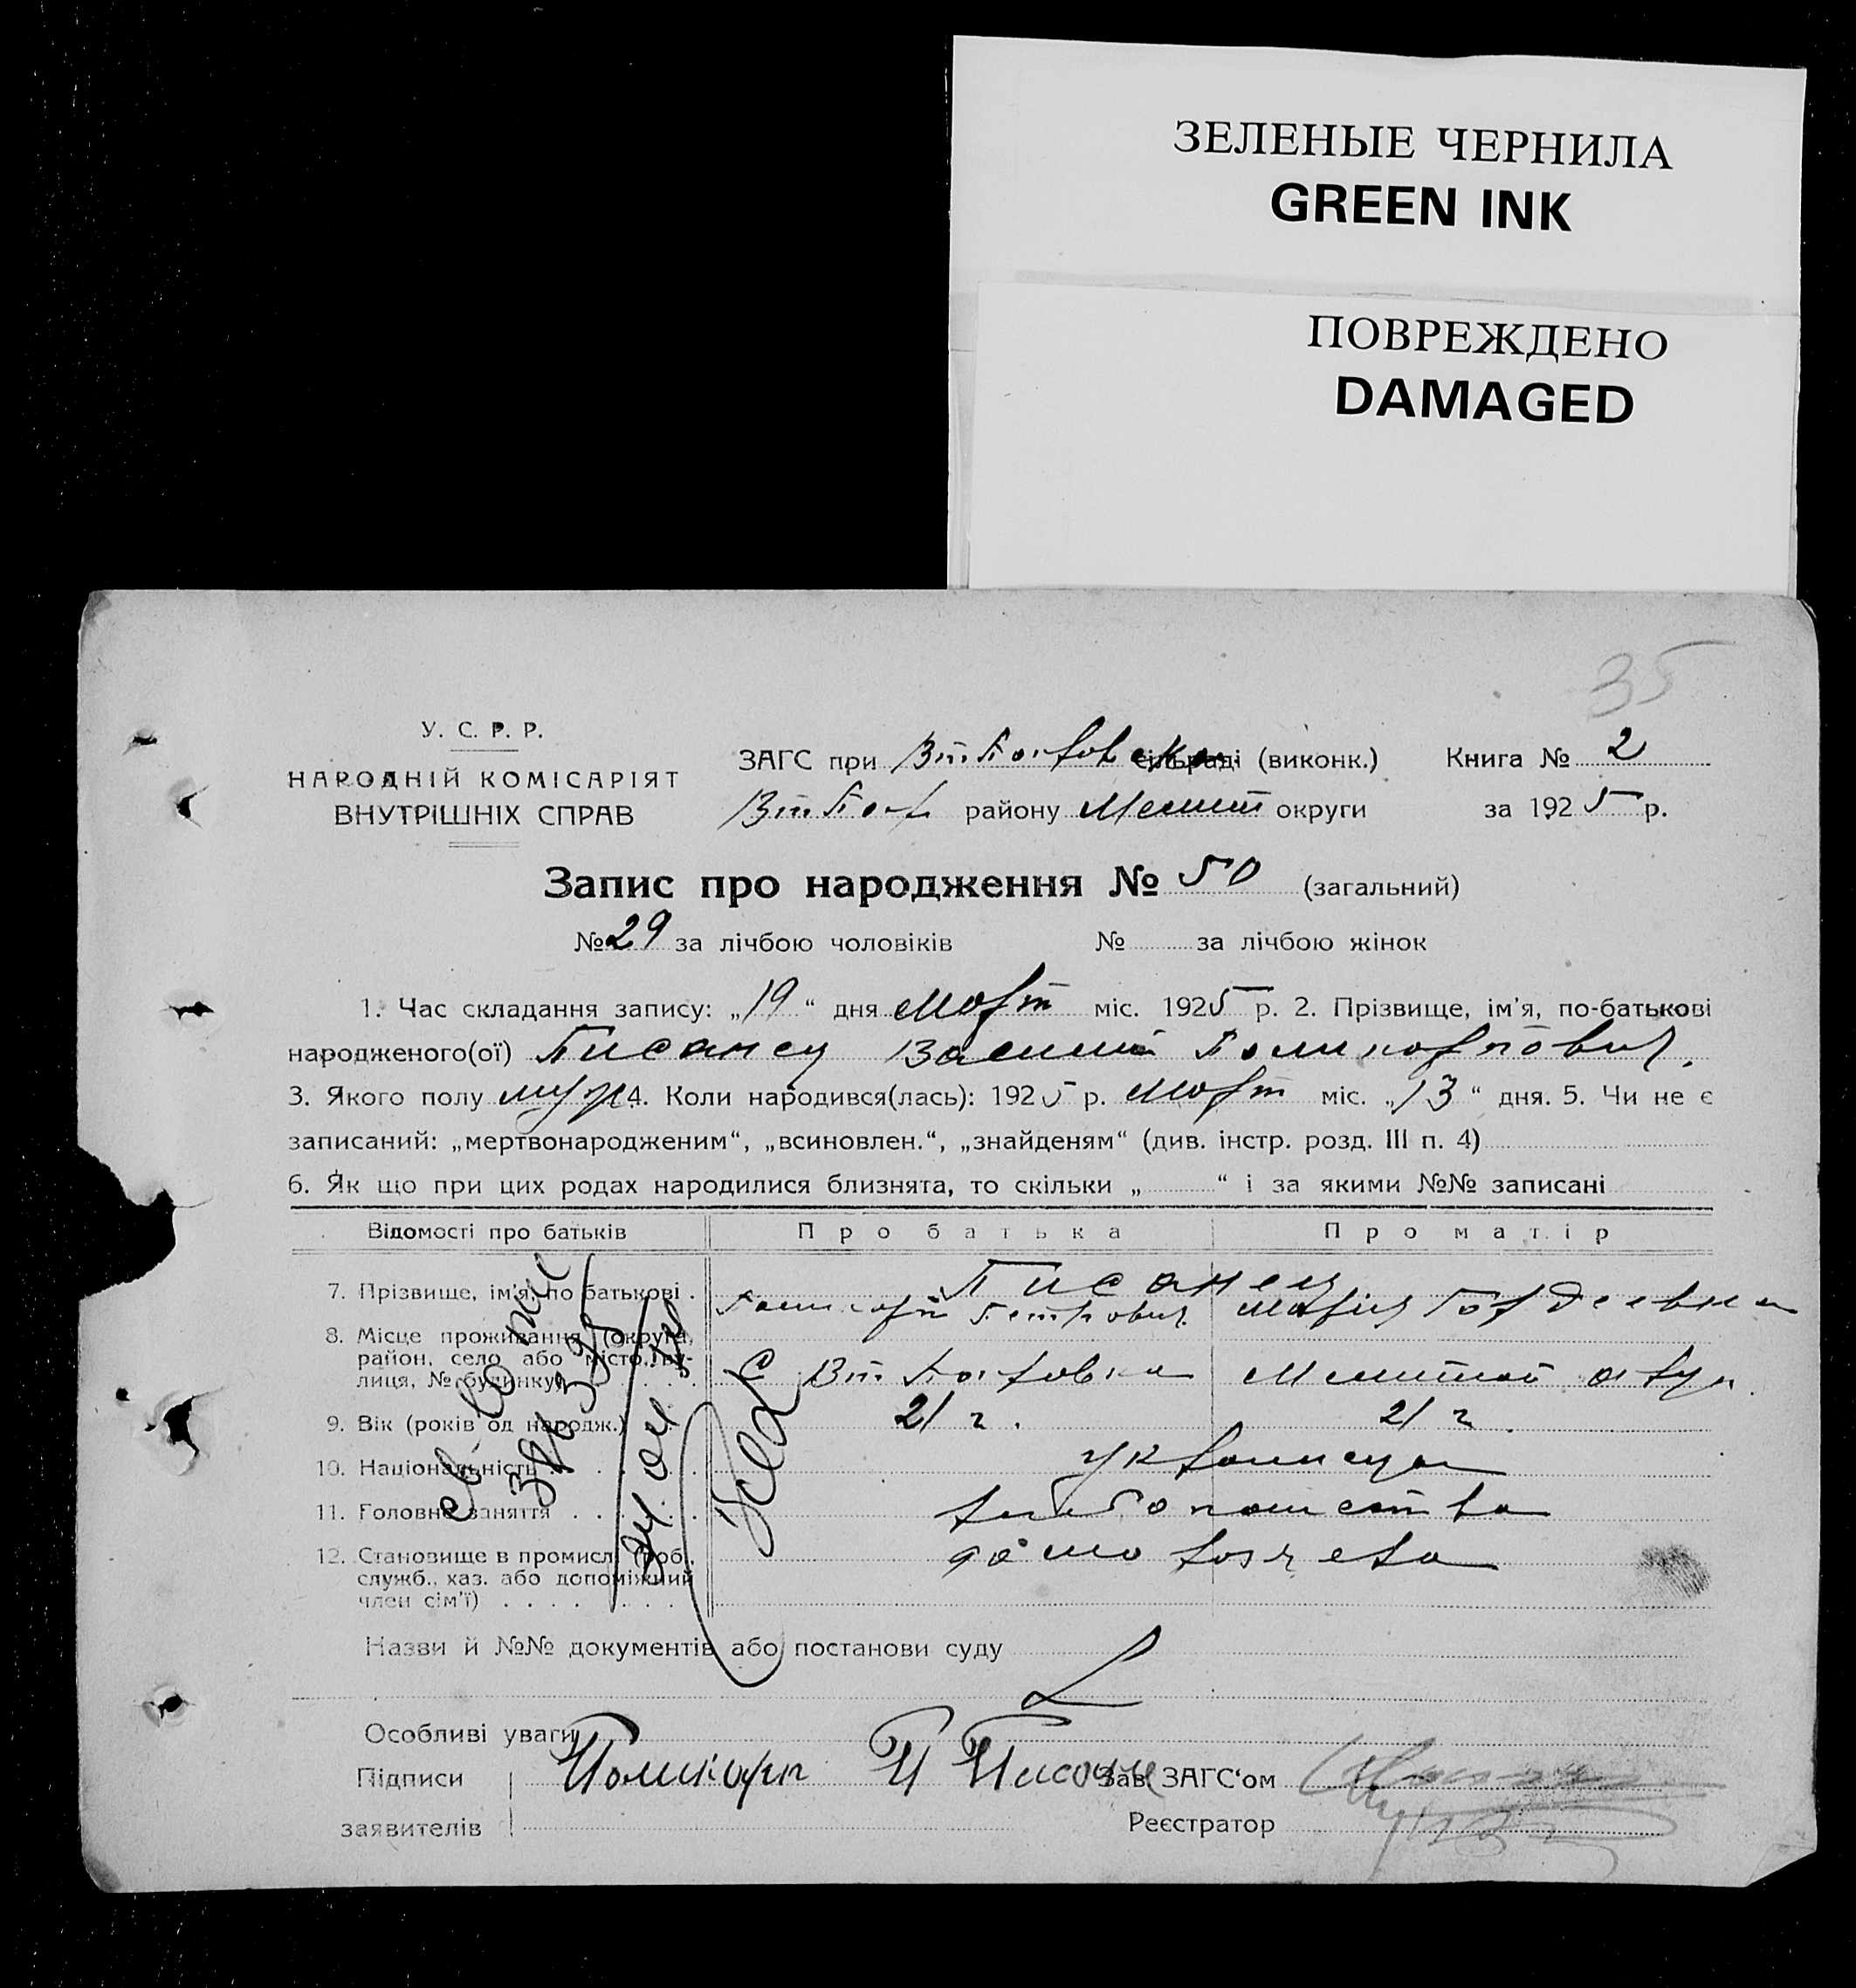 ЗЕЛЕНЫЕ ЧЕРНИЛА
GREEN INK
ПОВРЕЖДЕНО
DAMAGED
35
У. С. Р. Р.
НАРОДНІЙ КОМІСАРІЯТ
ВНУТРІШНІХ СПРАВ
ЗАГС при сільраді (виконк.) Книга № 2
району Мелит округи за 1925 р.
Запис про народження № 50 (загальний)
№ 29 за лічбою чоловіків № за лічбою жінок
1. Час складання запису: „19“ дня Март міс. 1925 р. 2. Прізвище, ім'я, по-батькові
народженого(ої) Писанец Василий Поликарпович.
3. Якого полу муж 4. Коли народився(лась): 1925 р. Март міс. „13“ дня. 5. Чи не є
записаний: „мертвонародженим“, „всиновлен.“, „знайденям“ (див. інстр. розд. III п. 4)
6. Як що при цих родах народилися близнята, то скільки „ “ і за якими №№ записані
Відомості про батьків Про батька Про матір
7. Прізвище, ім'я, по батькові . Писанец
Поликарп Петрович Мария Гордеевна
8. Місце проживання (округа,
район, село або місто, ву-
лиця, № будинку) С Мелитоп округ.
9. Вік (років од народж.) 21 г. 21 г.
10. Національність украинцы
11. Головне заняття хлебопашества
12. Становище в промислі (роб.,
служб., хаз. або допоміжний
член сім'ї)
Назви й №№ документів або постанови суду
Особливі уваги
Підписи Поликарп П Писанец Зав. ЗАГС‘ом
заявителів Реєстратор